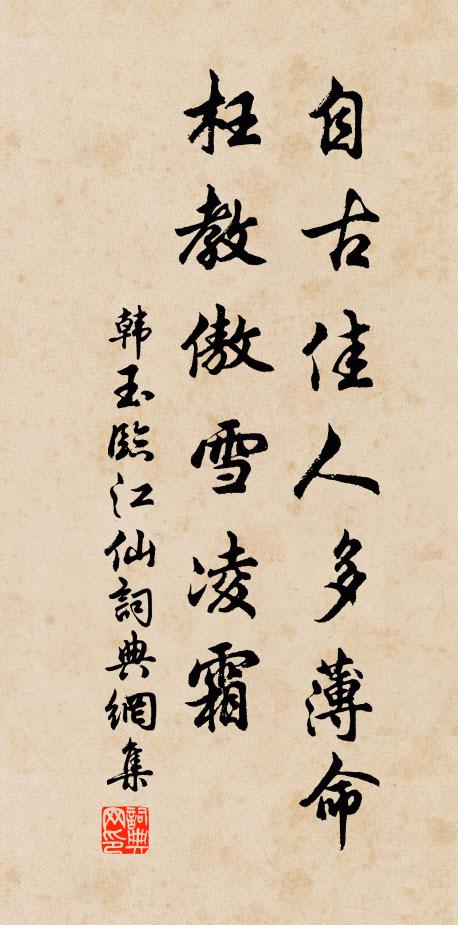 自古佳人多薄命
枉教傲雪凌霜
韩玉臨江仙詞典網集
詞典网印